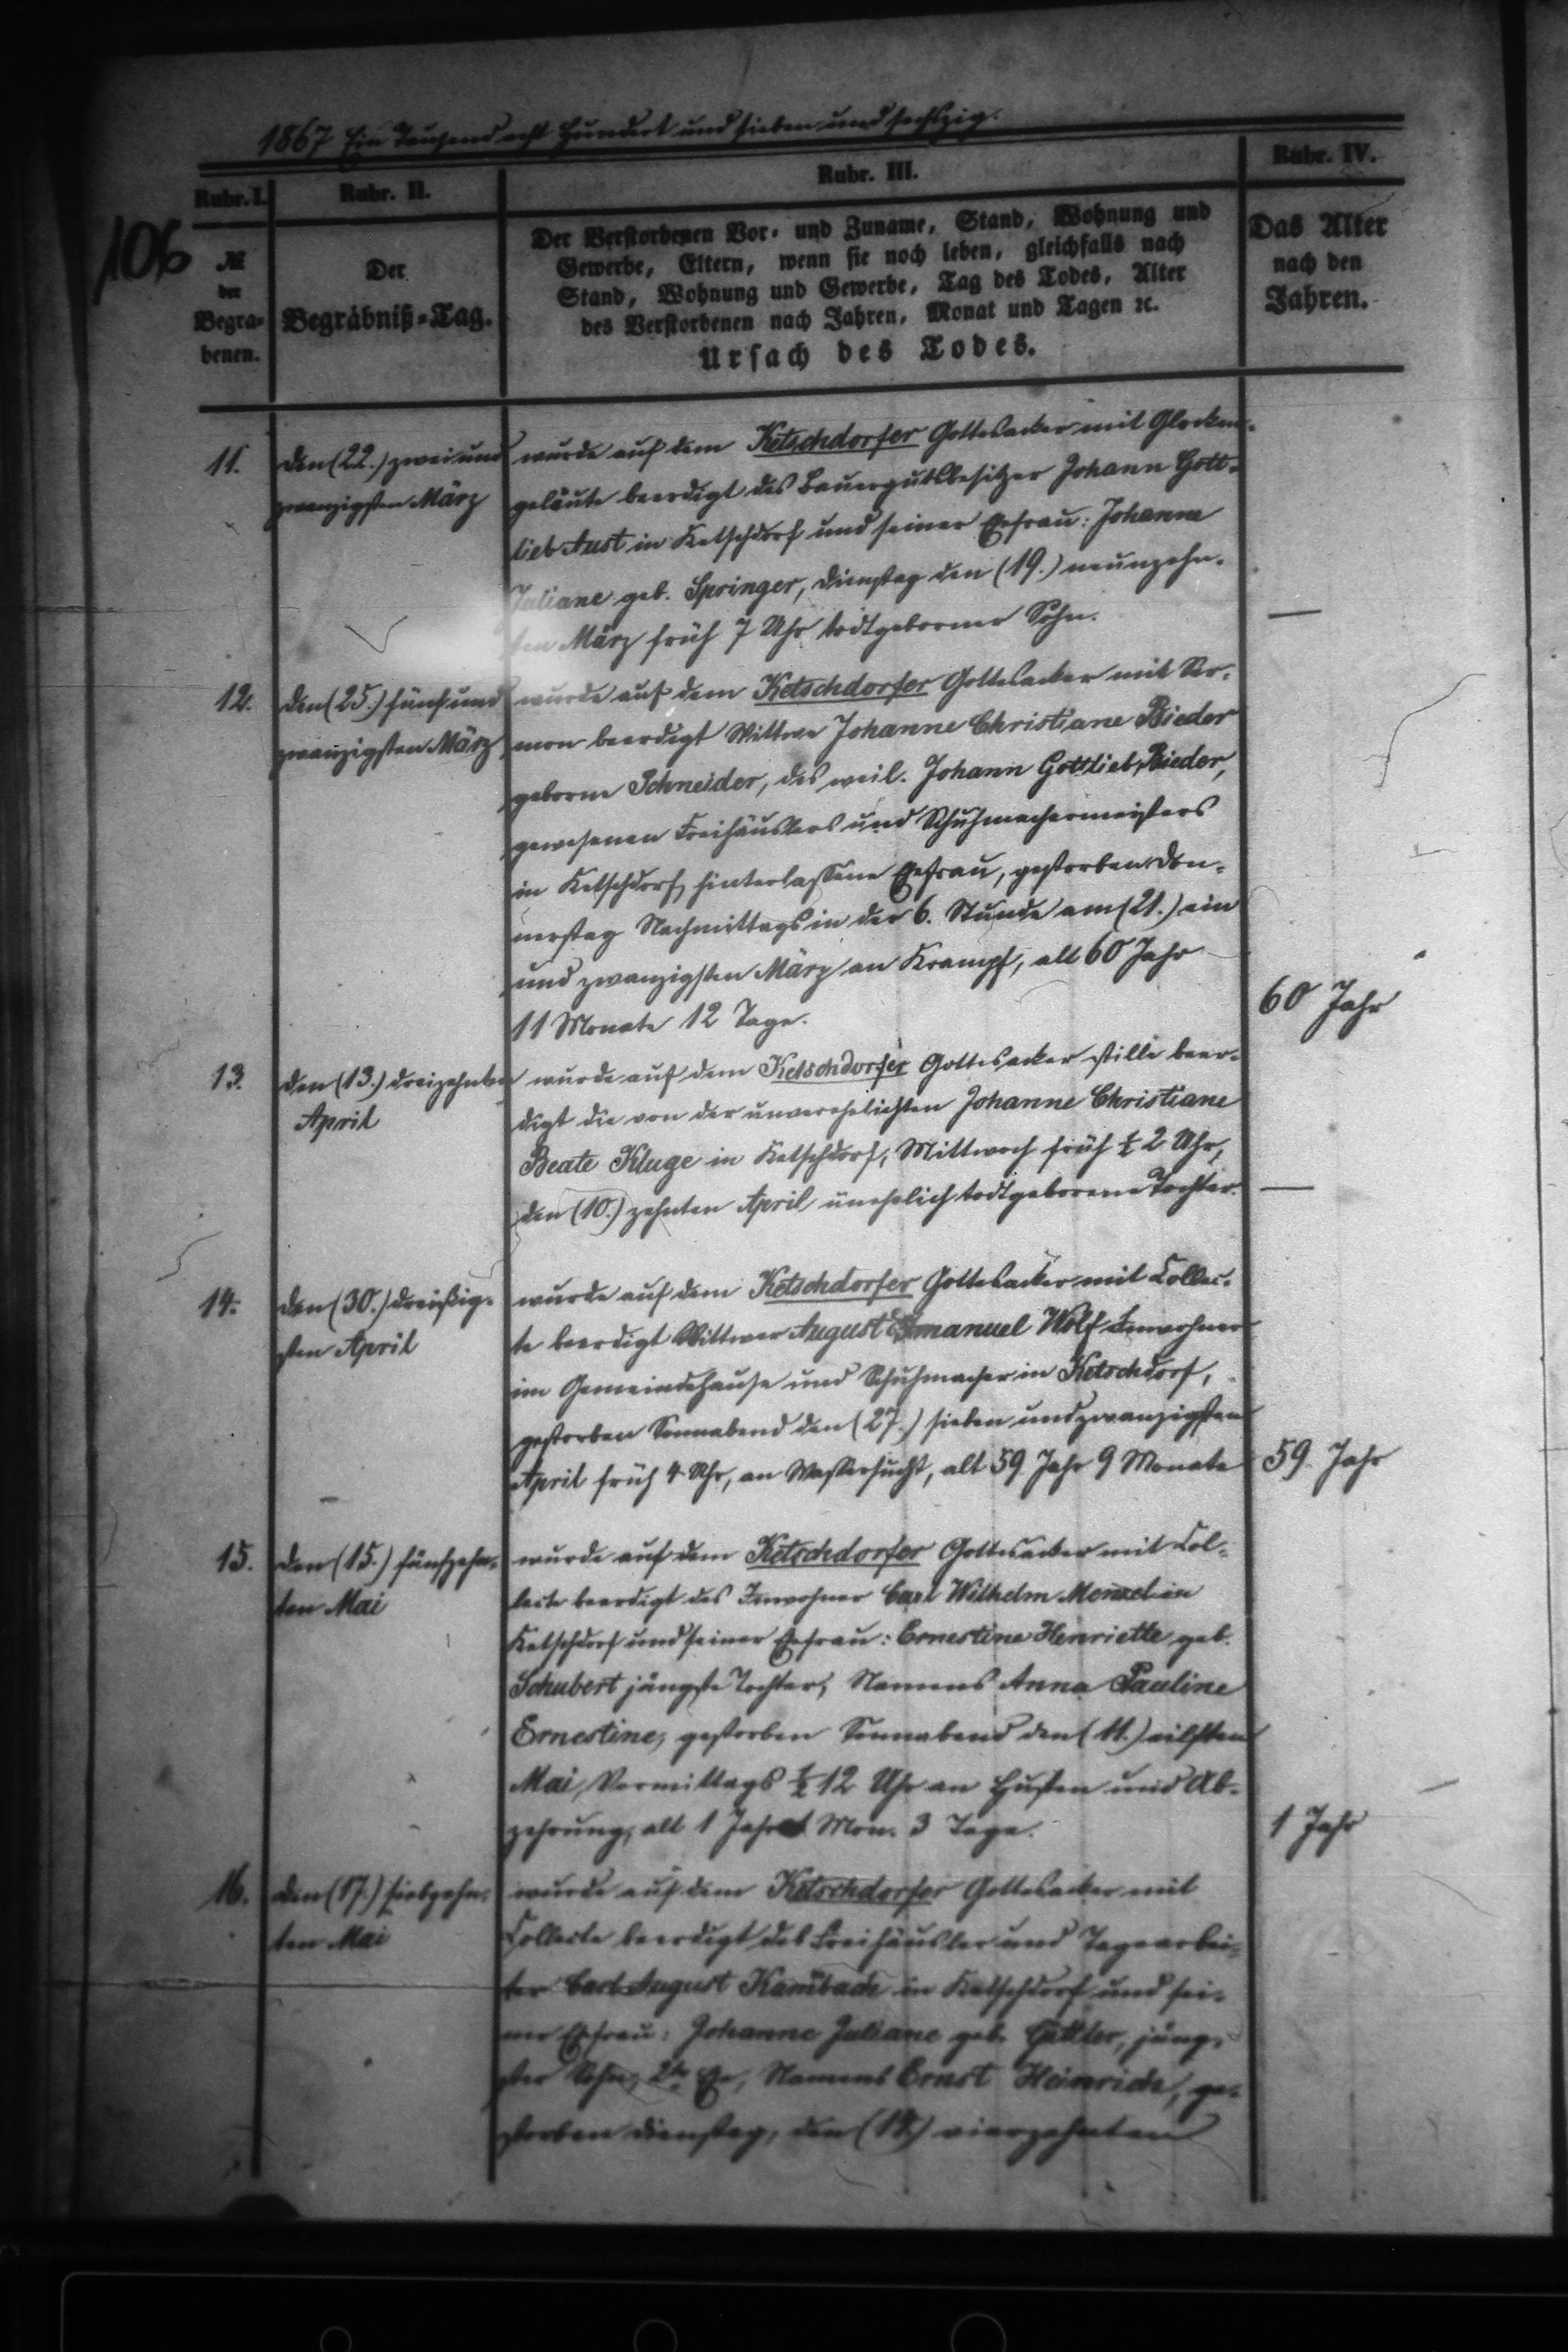 1867 Ein Tausend acht Hundert und sieben und sechszig.
106
Rubr. I.
Rubr. II.
Rubr. III.
Rubr. IV.
№
der
Begra-
benen.
Der
Begräbniß-Tag.
Der Verstorbenen Vor- und Zuname, Stand, Wohnung und
Gewerbe, Eltern, wenn sie noch leben, gleichfalls nach
Stand, Wohnung und Gewerbe, Tag des Todes, Alter
des Verstorbenen nach Jahren, Monat und Tagen ꝛc.
Ursach des Todes.
Das Alter
nach den
Jahren.
11.
den (22.) zwei und
zwanzigsten März
wurde auf dem Ketschdorfer Gottesacker mit Glocken-
geläute beerdigt des Bauergutsbesitzer Johann Gott-
lieb Aust in Ketschdorf und seiner Ehefrau: Johanne
Juliane geb. Springer, Dienstag den (19.) neunzehn-
ten März früh 7 Uhr todtgeborner Sohn.
—
12.
den (25.) fünf und
zwanzigsten März
wurde auf dem Ketschdorfer Gottesacker mit Ser-
mon beerdigt Wittwe Johanne Christiane Bieder
geborne Schneider, des weil. Johann Gottlieb Bieder,
gewesenen Freihäuslers und Schuhmachermeisters
in Ketschdorf, hinterlassene Ehefrau, gestorben Don-
nerstag Nachmittags in der 6. Stunde am (21.) ein
und zwanzigsten März an Krampf, alt 60 Jahr
11 Monate 12 Tage.
60 Jahr
13.
den (13.) dreizehnten
April
wurde auf dem Ketschdorfer Gottesacker stille beer-
digt die von der unverehelichten Johanne Christiane
Beate Kluge in Ketschdorf, Mittwoch früh ½ 2 Uhr,
den (10.) zehnten April unehelich todtgeborene Tochter.
—
14.
den (30.) dreißig-
sten April
wurde auf dem Ketschdorfer Gottesacker mit Collec-
te beerdigt Wittwer August Emanuel Wolf Inwohner
im Gemeindehause und Schuhmacher in Ketschdorf,
gestorben Sonnabend den (27.) sieben und zwanzigsten
April früh 4 Uhr, an Wassersucht, alt 59 Jahr 9 Monate
59 Jahr
15.
den (15.) fünfzehn-
ten Mai
wurde auf dem Ketschdorfer Gottesacker mit Col-
lecte beerdigt des Inwohner Carl Wilhelm Menzel in
Ketschdorf und seiner Ehefrau: Ernestine Henriette geb.
Schubert jüngste Tochter, Namens Anna Pauline
Ernestine, gestorben Sonnabend den (11.) eilften
Mai, Vormittags ½ 12 Uhr an Husten und Ab-
zehrung, alt 1 Jahr Mon. 3 Tage.
1 Jahr
16.
den (17.) siebzehn-
ten Mai
wurde auf dem Ketschdorfer Gottesacker mit
Collecte beerdigt des Freihäusler und Tagearbei-
ter Carl August Kambach in Ketschdorf und sei-
ner Ehefrau: Johanne Juliane geb. jüng-
ster Sohn, 2ter Ehe, Namens Ernst Heinrich, ge-
storben Dienstag, den (14.) vierzehnten